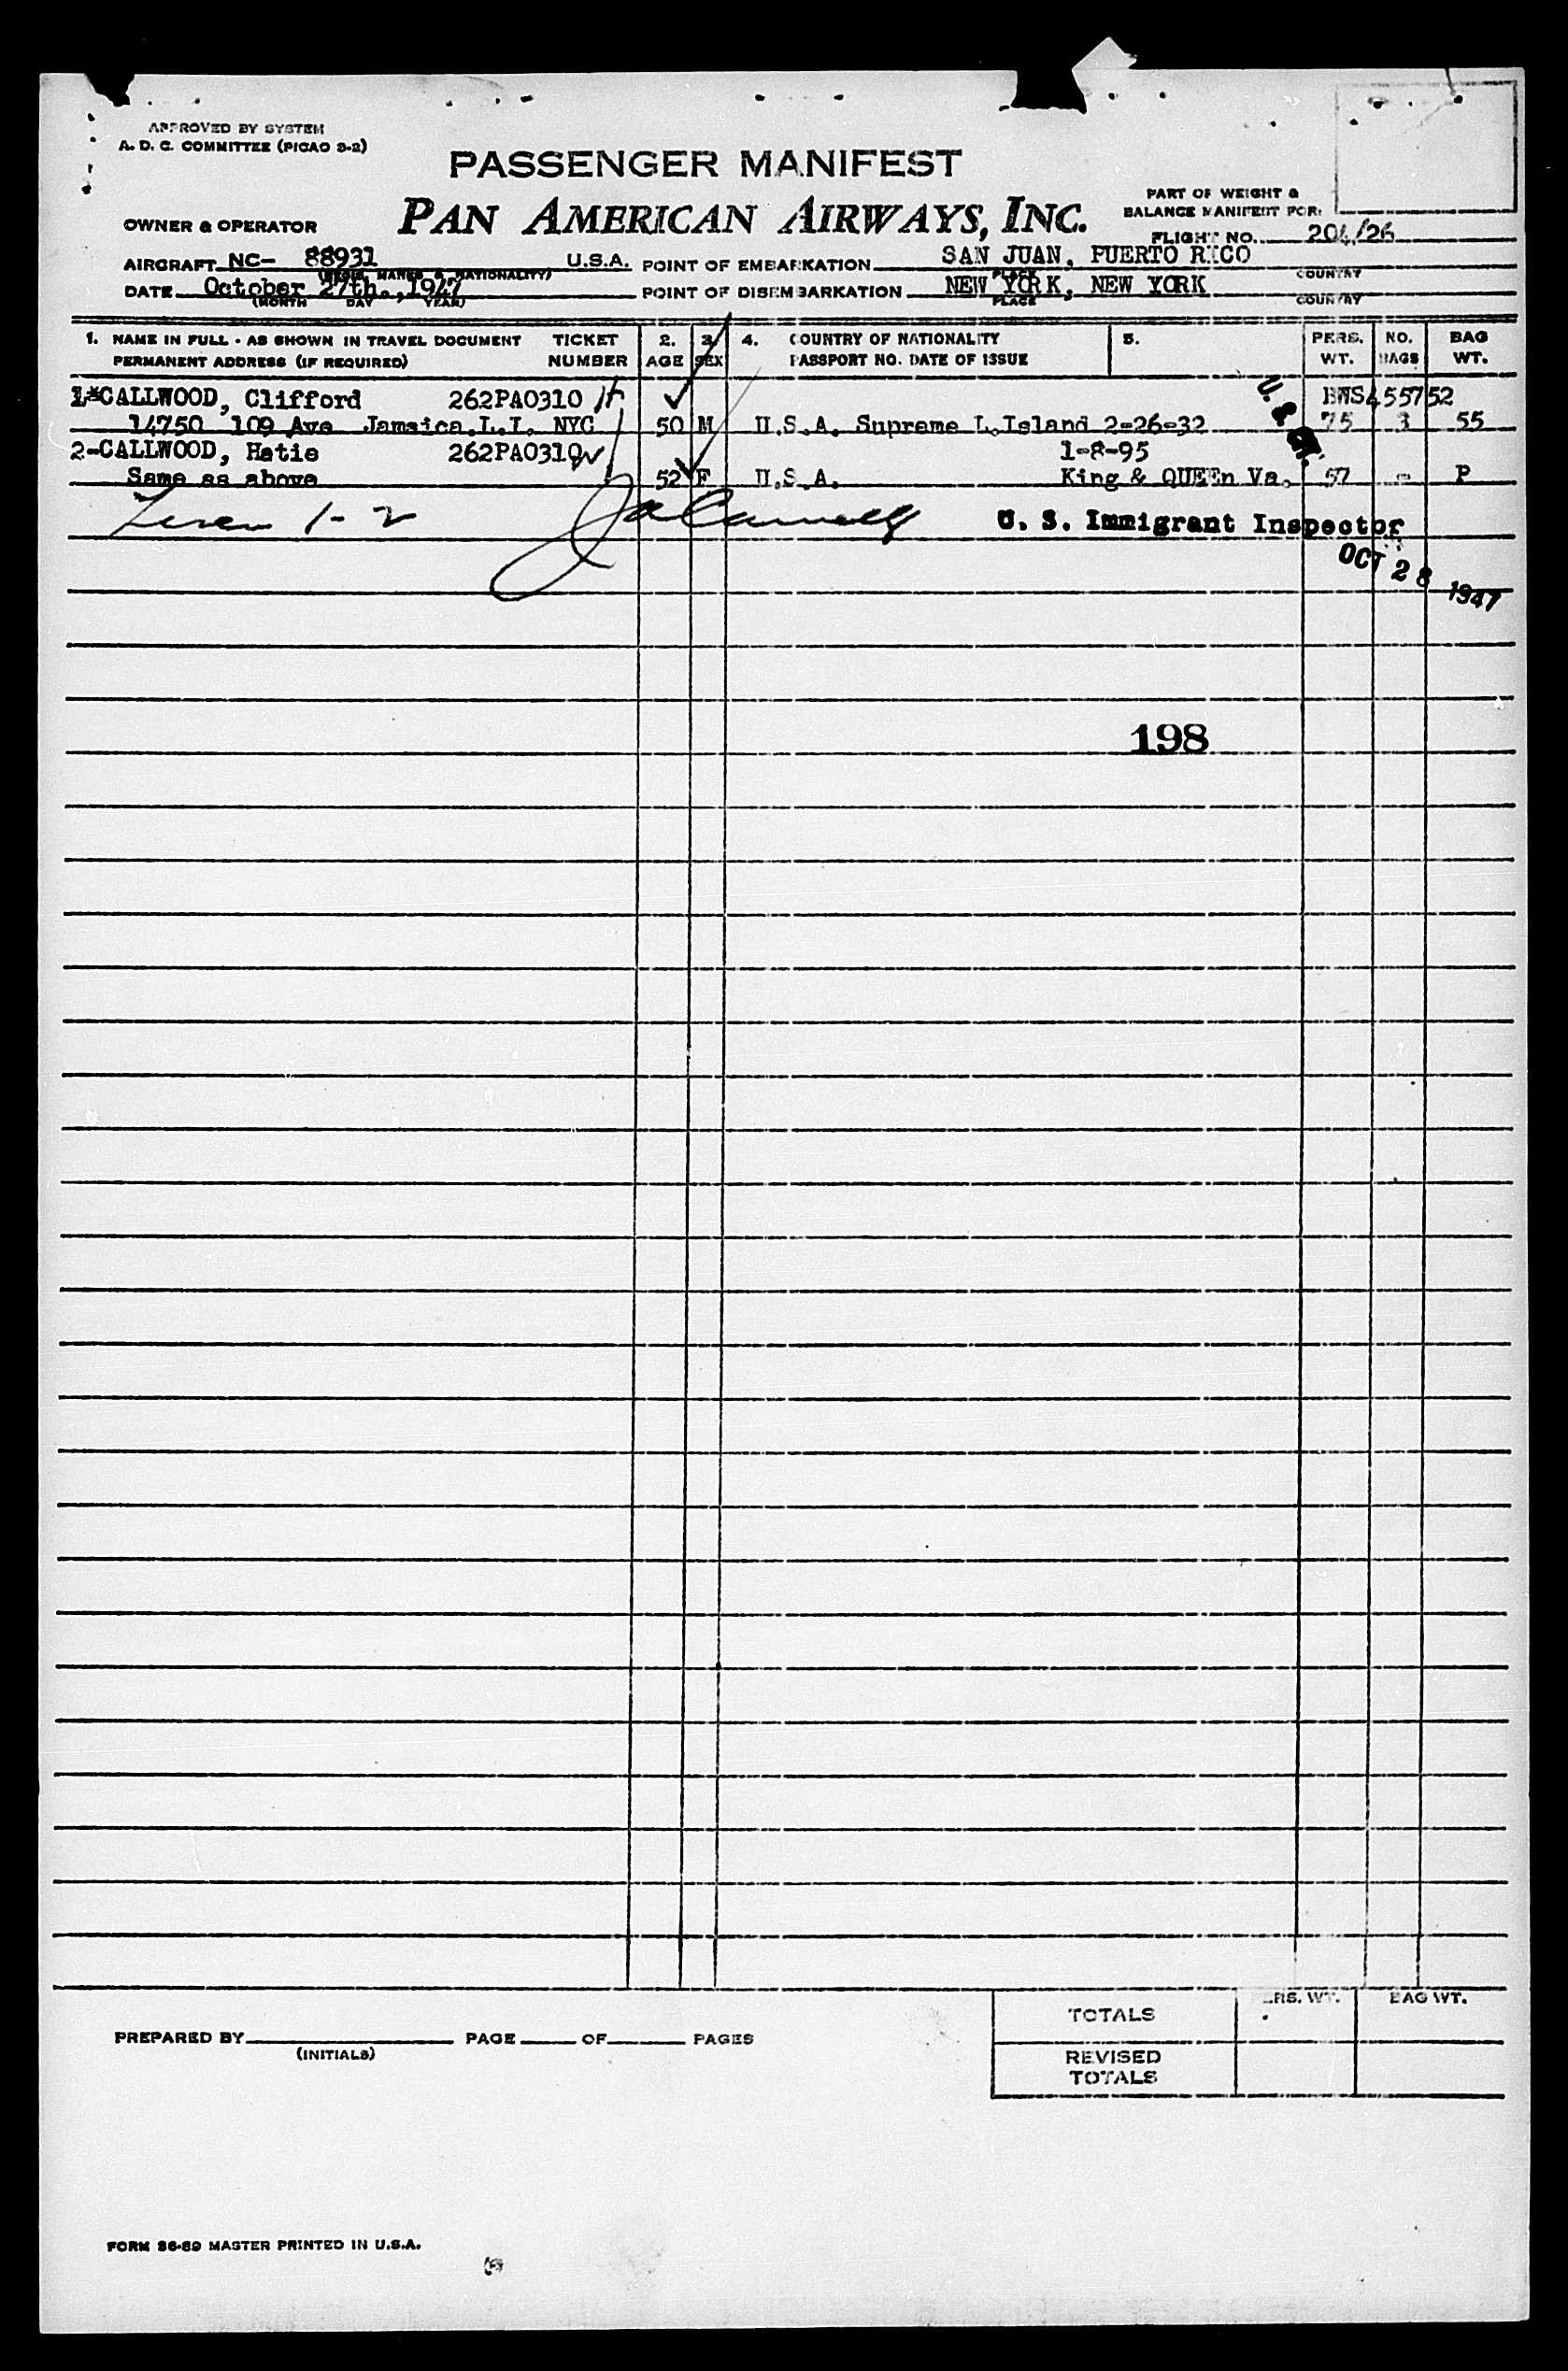 APPROVED BY SYSTEM
A. D. C. COMMITTEE (PICAO 3-2)
PASSENGER MANIFEST
PAN AMERICAN AIRWAYS, INC.
PART OF WEIGHT &
BALANCE MANIFEST FOR:
OWNER & OPERATOR
FLIGHT NO. 204/26
AIRCRAFT NC- 88931 U.S.A. POINT OF EMBARKATION SAN JUAN, PUERTO RICO
(REGIS. MARKS & NATIONALITY) PLACE COUNTRY
DATE October 27th.,1947 POINT OF DISEMBARKATION NEW YORK, NEW YORK
(MONTH DAY YEAR) PLACE COUNTRY
1. NAME IN FULL - AS SHOWN IN TRAVEL DOCUMENT TICKET 2. 3. 4. COUNTRY OF NATIONALITY 5. PERS. NO. BAG
PERMANENT ADDRESS (IF REQUIRED) NUMBER AGE SEX PASSPORT NO. DATE OF ISSUE WT. BAGS WT.
1*CALLWOOD, Clifford 262PA0310 BWS455752
14750 109 Ave Jamaica.L.I. NYC 50 M U.S.A. Supreme L.Island 2-26-32 75 3 55
2-CALLWOOD, Hatie 262PA0310 1-8-95
Same as above 52 F U.S.A. King & QUEEn Va. 57 - P
1-2
U. S. Immigrant Inspector
OCT 28 1947
198
TOTALS PERS. WT. BAG WT.
PREPARED BY PAGE OF PAGES
(INITIALS)
REVISED
TOTALS
FORM 36-89 MASTER PRINTED IN U.S.A.